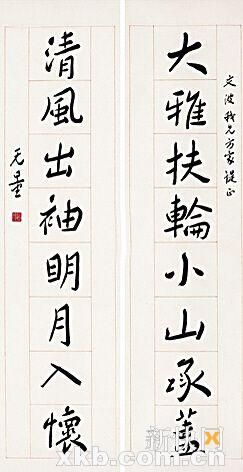 定波我兄方家諟正
大雅扶輪小山承蓋
清風出袖明月入懷
无量
www.xkb.com.cn